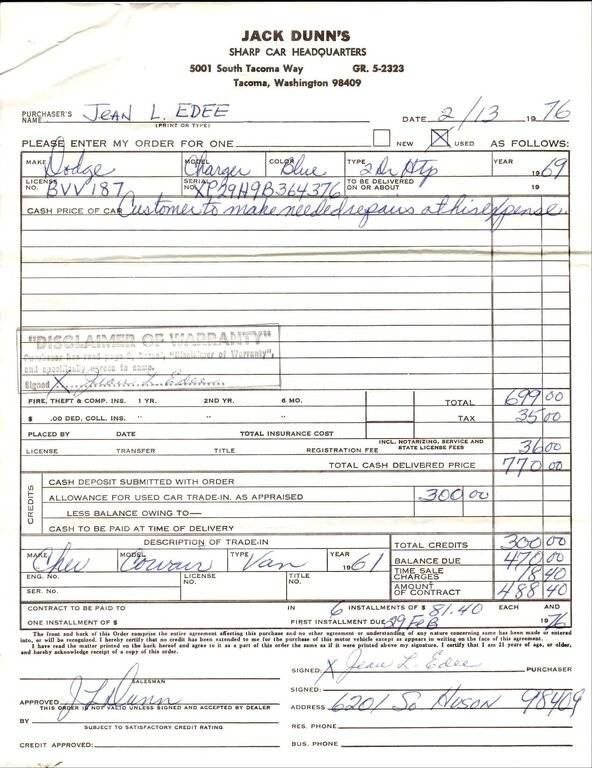 JACK DUNN'S
SHARP CAR HEADQUARTERS
5001 South Tacoma Way GR. 5-2323
Tacoma, Washington 98409
PURCHASER'S NAME JEAN L. EDEE DATE 2/13 1976
(PRINT OR TYPE)
PLEASE ENTER MY ORDER FOR ONE NEW X USED AS FOLLOWS:
MAKE Dodge MODEL Charger COLOR Blue TYPE 2 Dr Htp YEAR 1969
LICENSE NO. BVV 187 SERIAL NO. XP29H9B364376 TO BE DELIVERED ON OR ABOUT 19
CASH PRICE OF CAR Customer to make needed repairs at his expense.
"DISCLAIMER OF WARRANTY"
Purchaser has read page 2, "Disclaimer of Warranty",
and specifically agrees to same.
Signed X Jean L. Edee
FIRE, THEFT & COMP. INS. 1 YR. 2ND YR. 6 MO. TOTAL 699.00
$ .00 DED. COLL. INS. " " " TAX 35.00
PLACED BY DATE TOTAL INSURANCE COST
LICENSE TRANSFER TITLE REGISTRATION FEE INCL. NOTARIZING, SERVICE AND STATE LICENSE FEES 36.00
TOTAL CASH DELIVERED PRICE 770.00
CREDITS
CASH DEPOSIT SUBMITTED WITH ORDER
ALLOWANCE FOR USED CAR TRADE-IN. AS APPRAISED 300 00
LESS BALANCE OWING TO—
CASH TO BE PAID AT TIME OF DELIVERY
DESCRIPTION OF TRADE-IN TOTAL CREDITS 300.00
MAKE Chev MODEL Corvair TYPE Van YEAR 1961 BALANCE DUE 470.00
ENG. NO. LICENSE NO. TITLE NO. TIME SALE CHARGES 18.40
SER. NO. AMOUNT OF CONTRACT 488.40
CONTRACT TO BE PAID TO IN 6 INSTALLMENTS OF $ 81.40 EACH AND
ONE INSTALLMENT OF $ FIRST INSTALLMENT DUE 29 Feb 1976
The front and back of this Order comprise the entire agreement affecting this purchase and no other agreement or understanding of any nature concerning same has been made or entered
into, or will be recognized. I hereby certify that no credit has been extended to me for the purchase of this motor vehicle except as appears in writing on the face of this agreement.
I have read the matter printed on the back hereof and agree to it as a part of this order the same as if it were printed above my signature. I certify that I am 21 years of age, or older,
and hereby acknowledge receipt of a copy of this order.
SIGNED: X Jean L. Edee PURCHASER
SALESMAN
SIGNED:
APPROVED J L Dunn
THIS ORDER IS NOT VALID UNLESS SIGNED AND ACCEPTED BY DEALER
ADDRESS 6201 So HUSON 98409
BY
SUBJECT TO SATISFACTORY CREDIT RATING
RES. PHONE
CREDIT APPROVED: BUS. PHONE